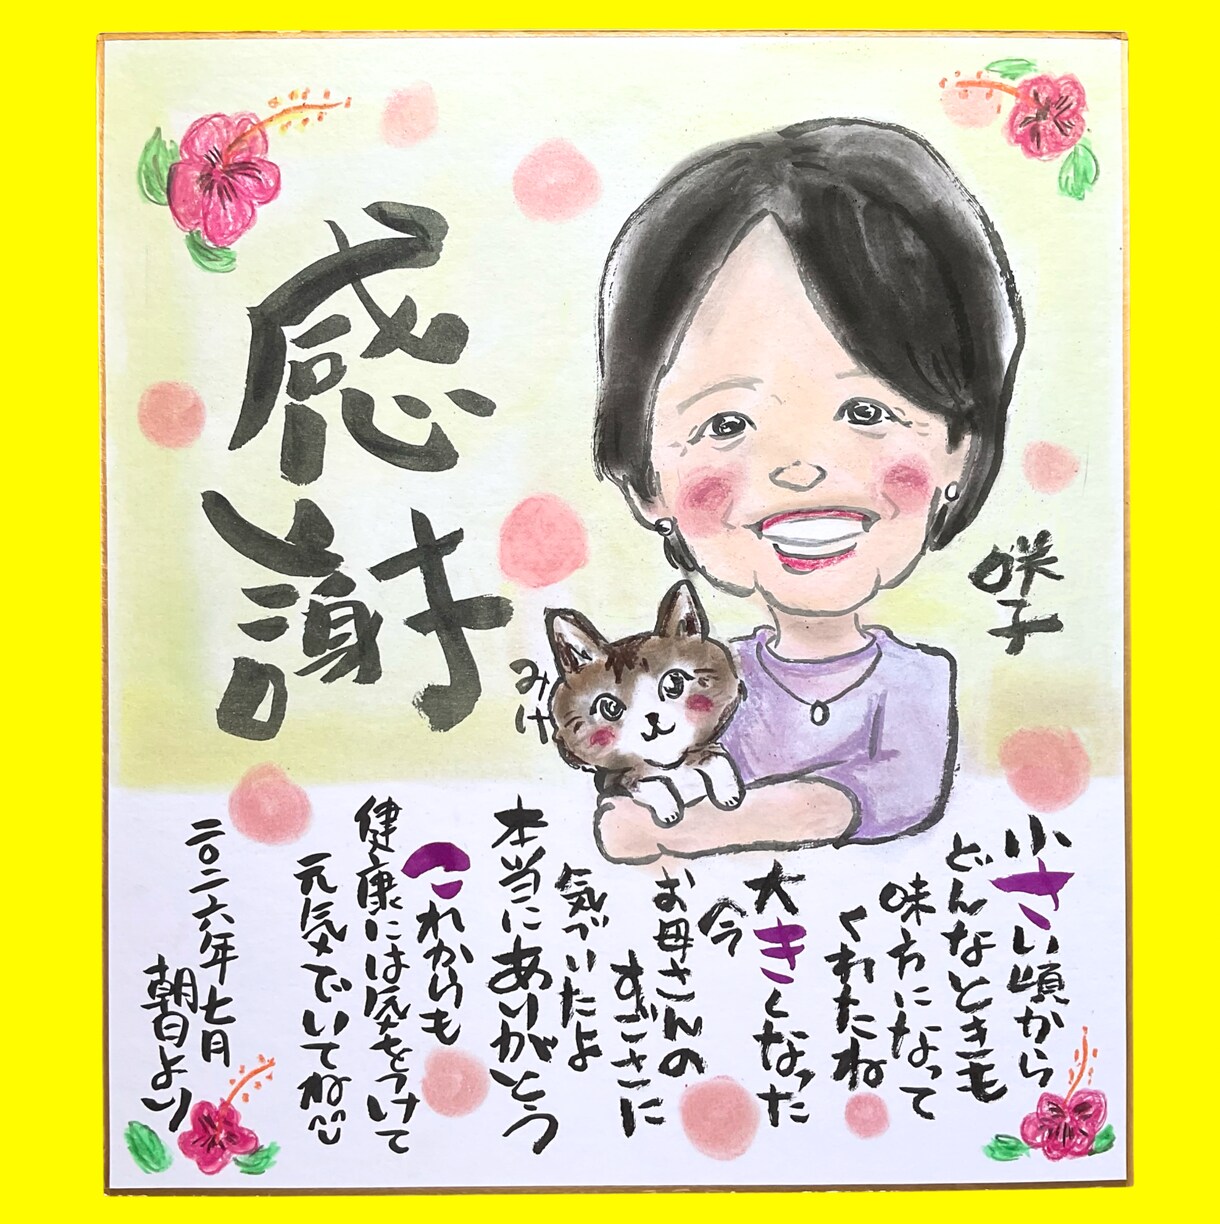 感謝
咲子
みけ
小さい頃から
どんなときも
味方になって
くれたね
大きくなった
今
お母さんの
すごさに
気づいたよ
本当にありがとう
これからも
健康には気をつけて
元気でいてね
二〇二六年七月
朝日より